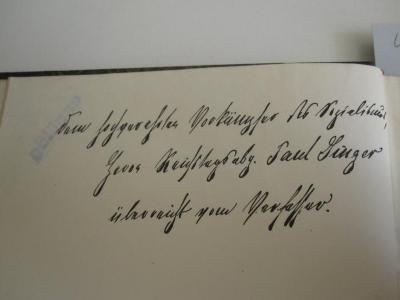 Dem hochgeehrten Vorkämpfer des Sozialismus,
Herrn Reichstagsabg. Paul Singer
überreicht vom Verfasser.